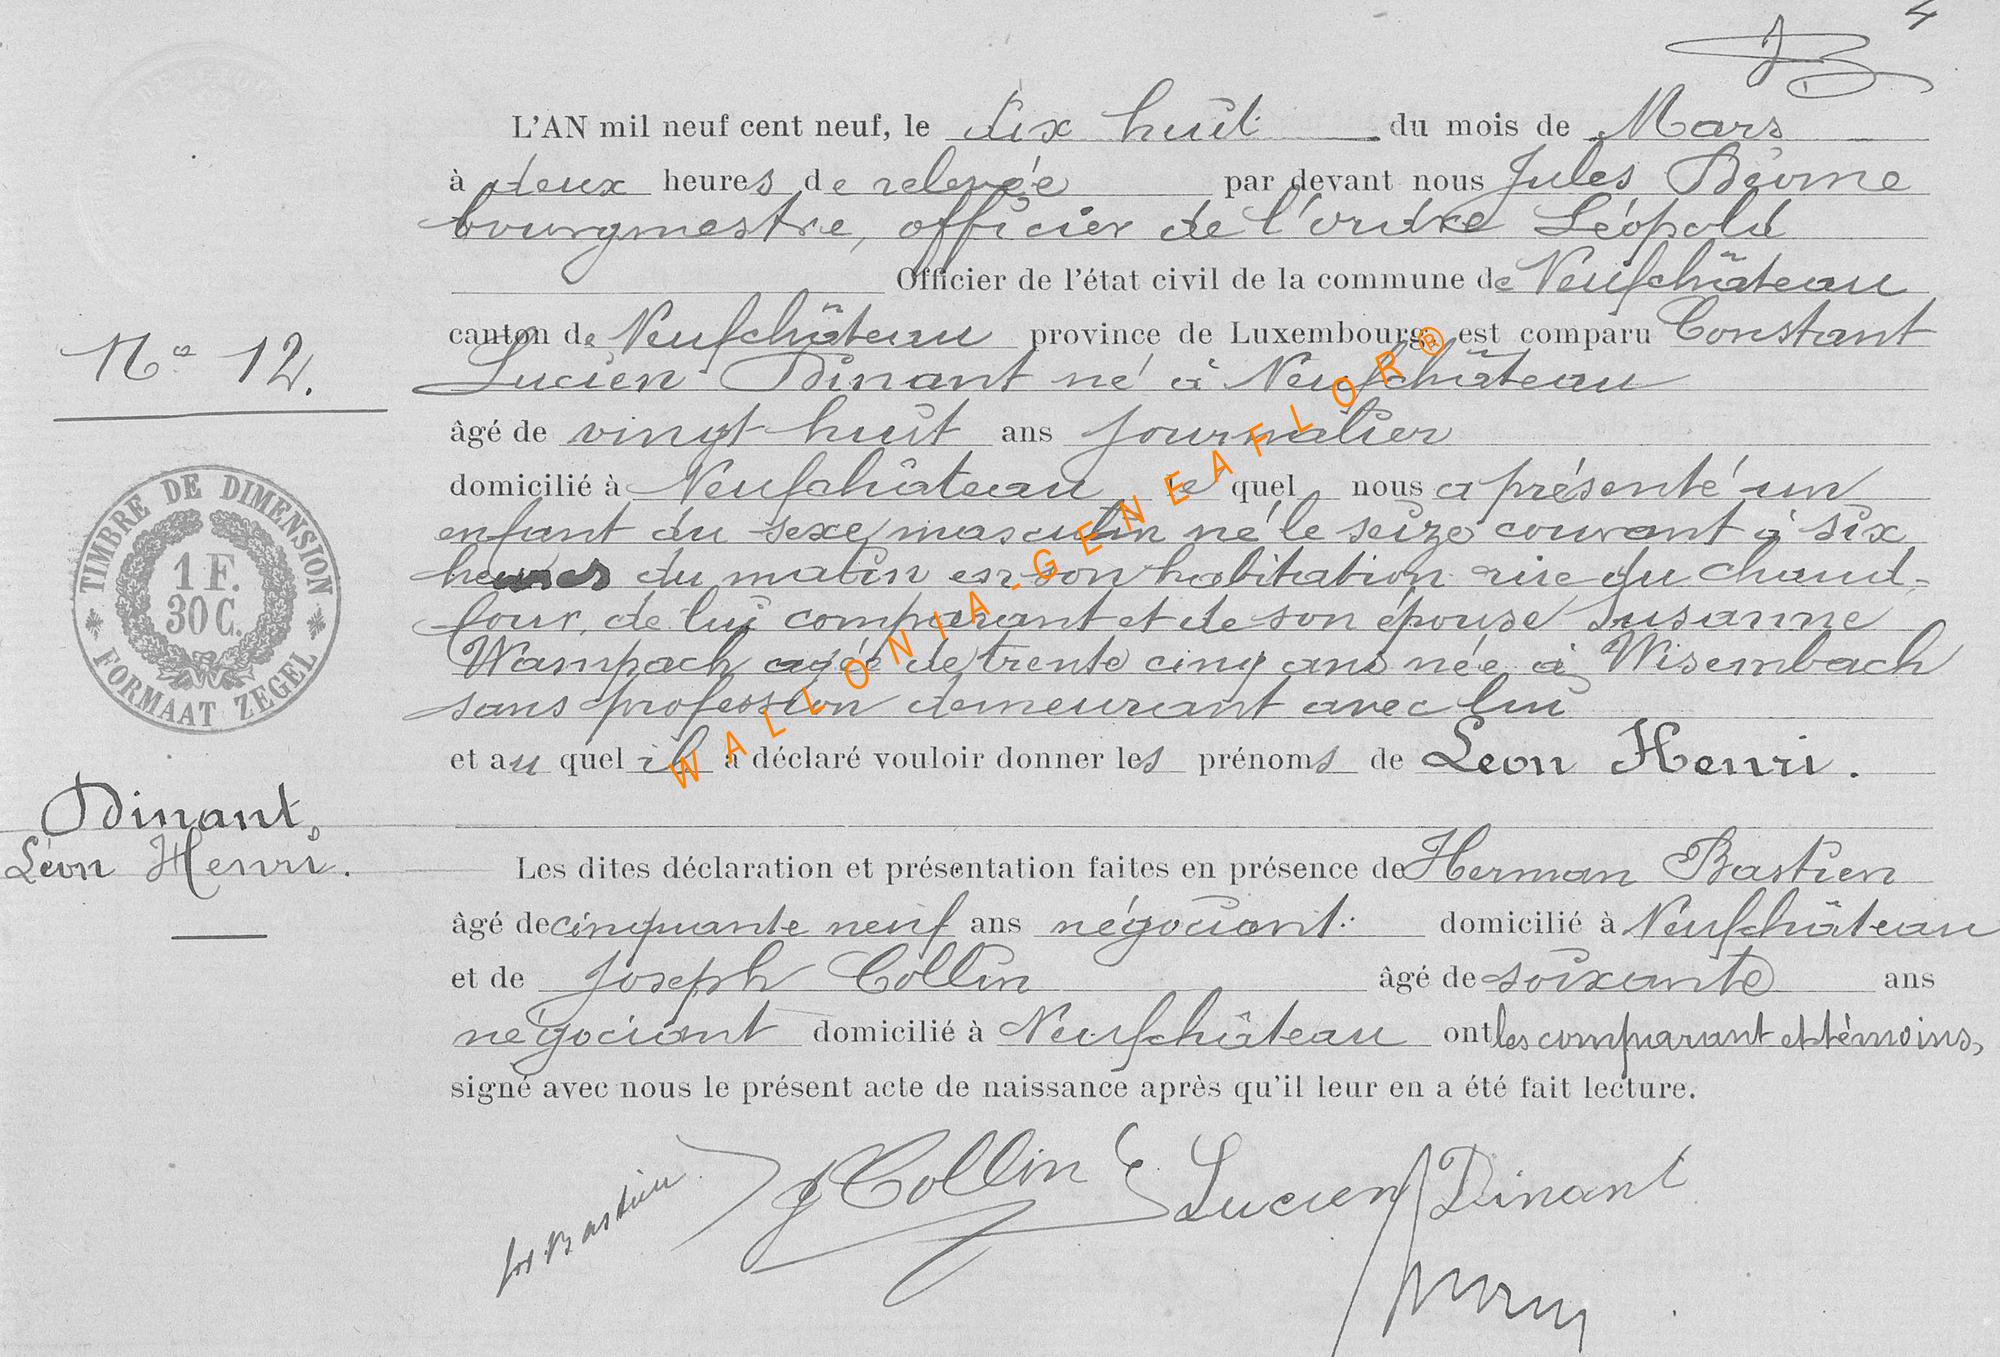 4
L'AN mil neuf cent neuf, le dix huit du mois de Mars
à deux heures de relevée par devant nous Jules
bourgmestre, officier de l'ordre Léopold
Officier de l'état civil de la commune de Neufchâteau
canton de Neufchâteau province de Luxembourg, est comparu Constant
Lucien Dinant né à Neufchâteau
âgé de vingt huit ans journalier
domicilié à Neufchâteau le quel nous a présenté un
enfant du sexe masculin né le seize courant à six
heures du matin en son habitation rue du chaud-
four, de lui comparant et de son épouse Susanne
Wampach agée de trente cinq ans née à Wisembach
sans profession demeurant avec lui
et au quel il a déclaré vouloir donner les prénoms de Léon Henri.
Les dites déclaration et présentation faites en présence de Herman Bastien
âgé de cinquante neuf ans négociant domicilié à Neufchâteau
et de Joseph Collin âgé de soixante ans
négociant domicilié à Neufchâteau ont les comparant et témoins,
signé avec nous le présent acte de naissance après qu'il leur en a été fait lecture.
Bastien J Collin Lucien Dinant
No 12.
TIMBRE DE DIMENSION
1 F.
30 C.
FORMAAT ZEGEL
Dinant,
Léon Henri.
WALLONIA-GENEAFLOR®